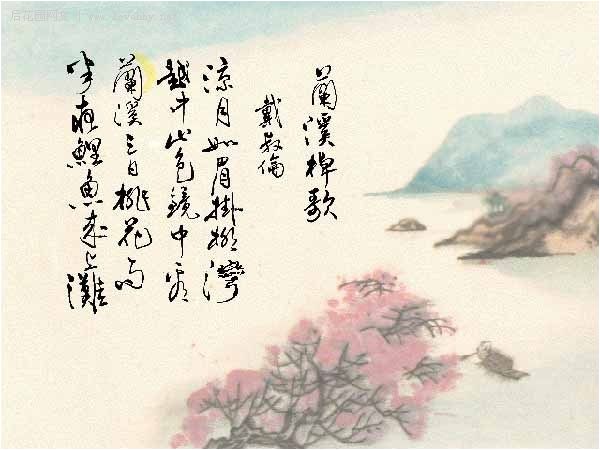 后花园网文 | www.lovehhy.net
蘭溪棹歌
戴叔倫
涼月如眉掛柳灣
越中山色鏡中看
蘭溪三日桃花雨
半夜鯉魚來上灘